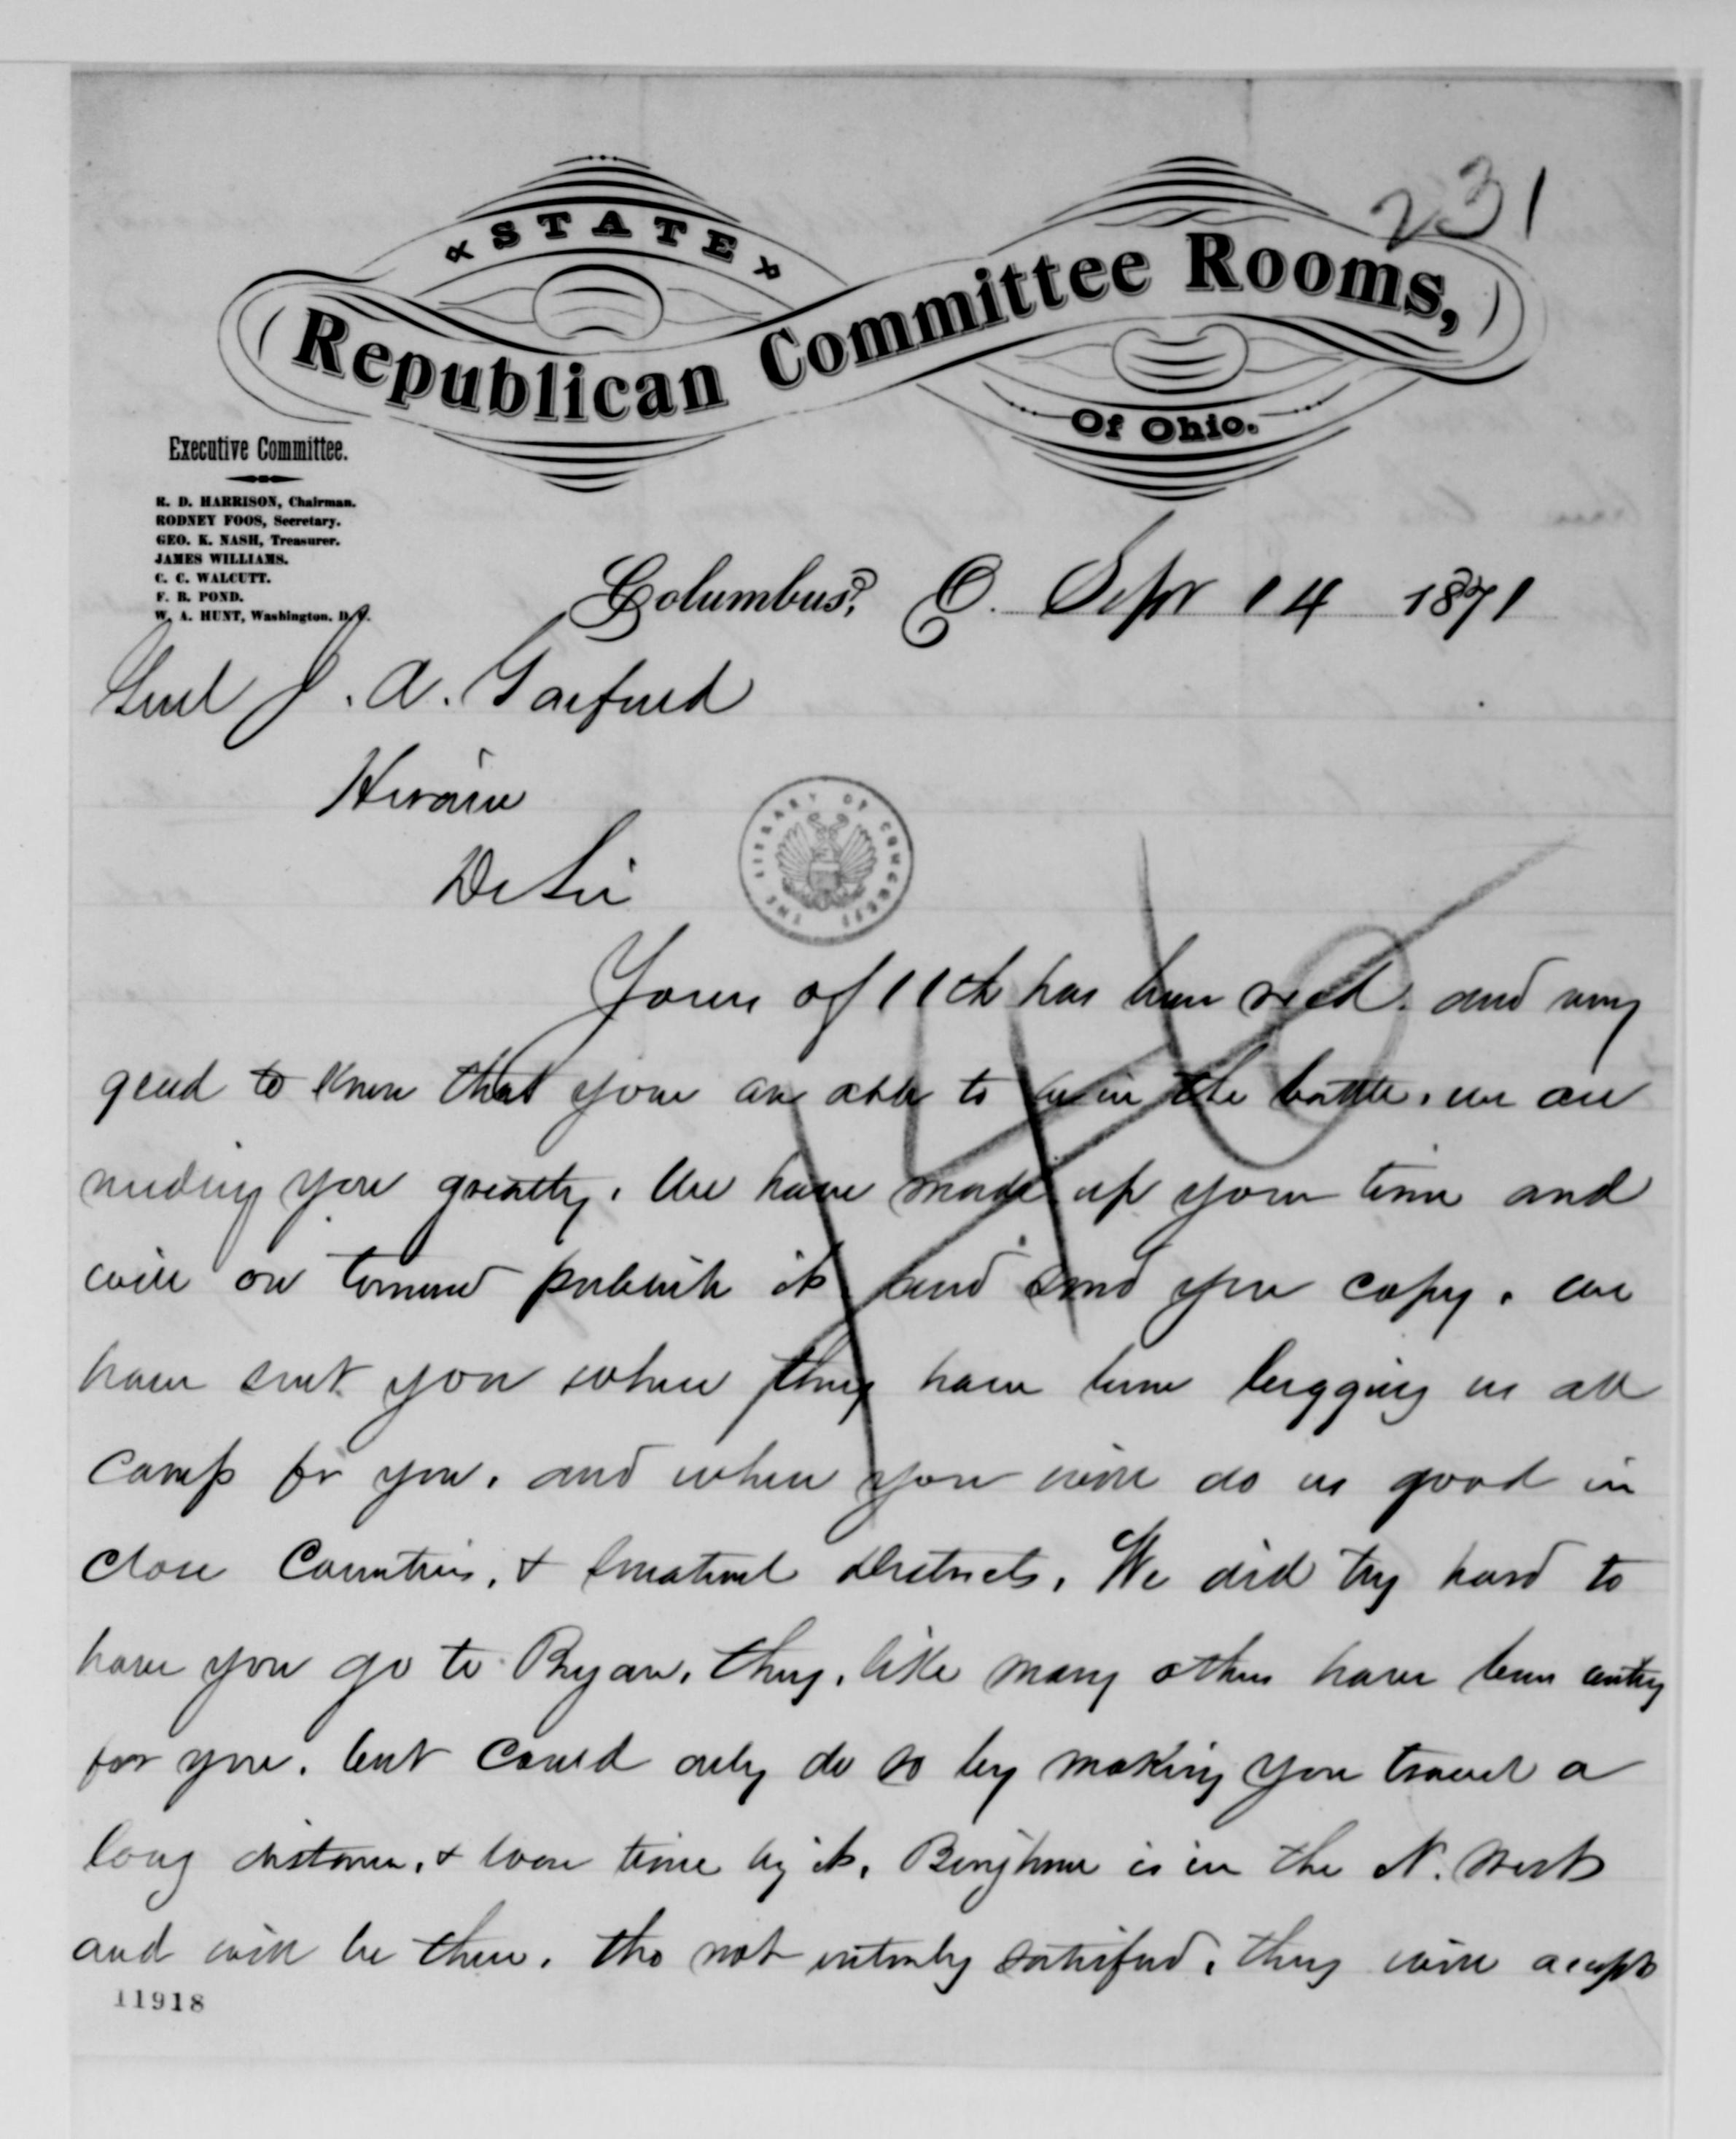 231
STATE
Republican Committee Rooms,
Of Ohio.
Executive Committee.
R. D. HARRISON, Chairman.
RODNEY FOOS, Secretary.
GEO. K. NASH, Treasurer.
JAMES WILLIAMS.
C. C. WALCUTT.
F. B. POND.
W. A. HUNT, Washington, D. C.
Columbus, O. Sept 14 1871
Genl J. A. Garfield
Hiram
Dr Sir
THE LIBRARY OF CONGRESS
Yours of 11th has been recd. and very
glad to know that your are able to be in the battle. we are
needing you greatly. We have made up your time and
will on tomorrow publish it and send you copy. we
have sent you where they have been begging us all
camp for you. and where you will do us good in
close Counties, & Senatorial districts. We did try hard to
have you go to Bryan. they, like many others have been
for you. but could only do so by making you travel a
long distance, & loose time by it. Bingham is in the N. West
and will be there. tho not entirely satisfied. they will accept
11918